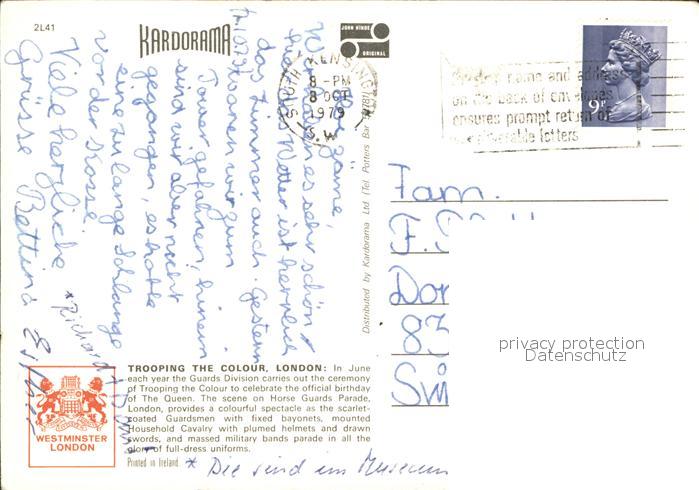 2L41
KARDORAMA
JOHN HINDE
ORIGINAL
SOUTH KENSINGTON
8 - PM
8 OCT
1979
S.W.
name and address
on the back of envelopes
ensures prompt return of
undeliverable letters
9P
Wir finden es sehr schön
hier. Das Wetter ist herrlich
das Zimmer auch. Gestern
waren wir zum
Tower gefahren, hinein
sind wir aber nicht
gegangen, es hatte
eine zu lange Schlange
vor der Kasse.
Viele herzliche
Grüsse Bettina
* Richard +
Distributed by Kardorama Ltd (Tel Potters Bar
Fam.
F.
Dor
83
Swi
privacy protection
Datenschutz
WESTMINSTER
LONDON
TROOPING THE COLOUR, LONDON: In June
each year the Guards Division carries out the ceremony
of Trooping the Colour to celebrate the official birthday
of The Queen. The scene on Horse Guards Parade,
London, provides a colourful spectacle as the scarlet-
coated Guardsmen with fixed bayonets, mounted
Household Cavalry with plumed helmets and drawn
swords, and massed military bands parade in all the
glory of full-dress uniforms.
Printed in Ireland
* Die sind im Museum